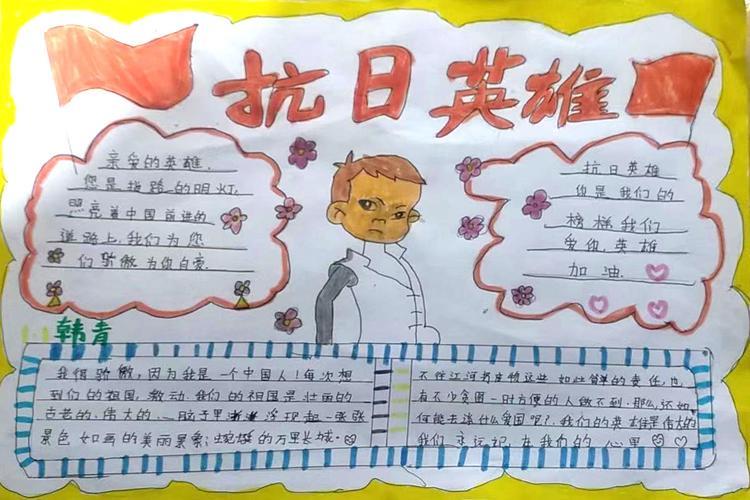 抗日英雄
亲爱的英雄.
您是指路的明灯.
照亮着中国前进的
道路上.我们为您
们骄傲为你自豪.
抗日英雄
你是我们的
榜样我们
爱你.英雄
加油.
韩青
我很骄傲,因为我是一个中国人!每次想
到们的祖国,激动.我们的祖国是壮丽的
古老的.伟大的.一脑子里 浮现起一张张
景色如画的美丽景象:蜿蜒的万里长城.
不往江河 物这些 如此简单的责任,也
有不少贪图一时方便的人做不到.那么,还如
何能去谈什么爱国呢?.我们的英雄是伟大的
我们 永远记 在我们的 心里